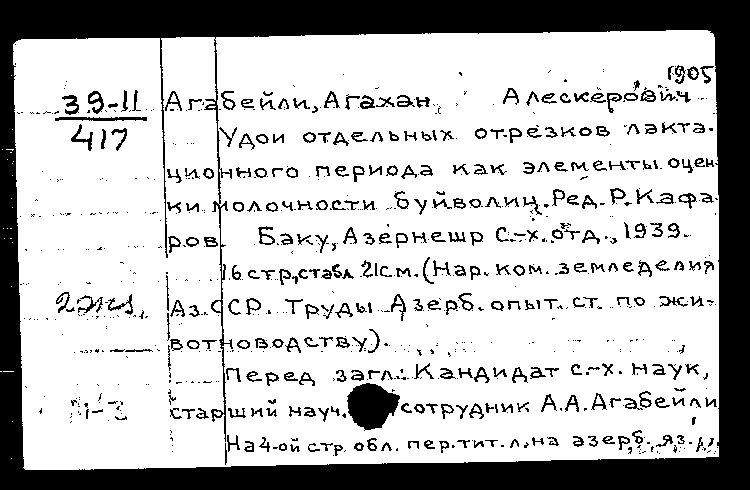 1905
39-11 Агабейли, Агахан Алескерович
417 Удои отдельных отрезков лакта-
ционного периода как элементы оцен
ки молочности буйволиц. Ред. Р. Кафа
ров. Баку, Азернешр с.-х. отд., 1939.
16 стр, с табл 21 см. (Нар. ком. земледелия
2 экз. Аз.ССР. Труды Азерб. опыт. ст. по жи-
вотноводству).
Перед загл.: Кандидат с.-х. наук,
старший науч. сотрудник А.А. Агабейли
На 4-ой стр обл. пер. тит. л. на азерб. яз.